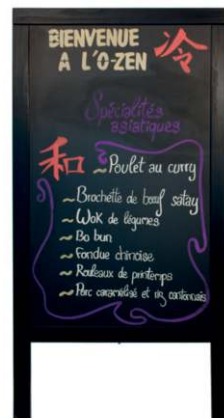 BIENVENUE 冷
A L'O-ZEN
Spécialités
asiatiques
和 ~ Poulet au curry
~ Brochette de bœuf satay
~ Wok de légumes
~ Bo bun
~ Fondue chinoise
~ Rouleaux de printemps
~ Porc caramélisé et riz cantonais